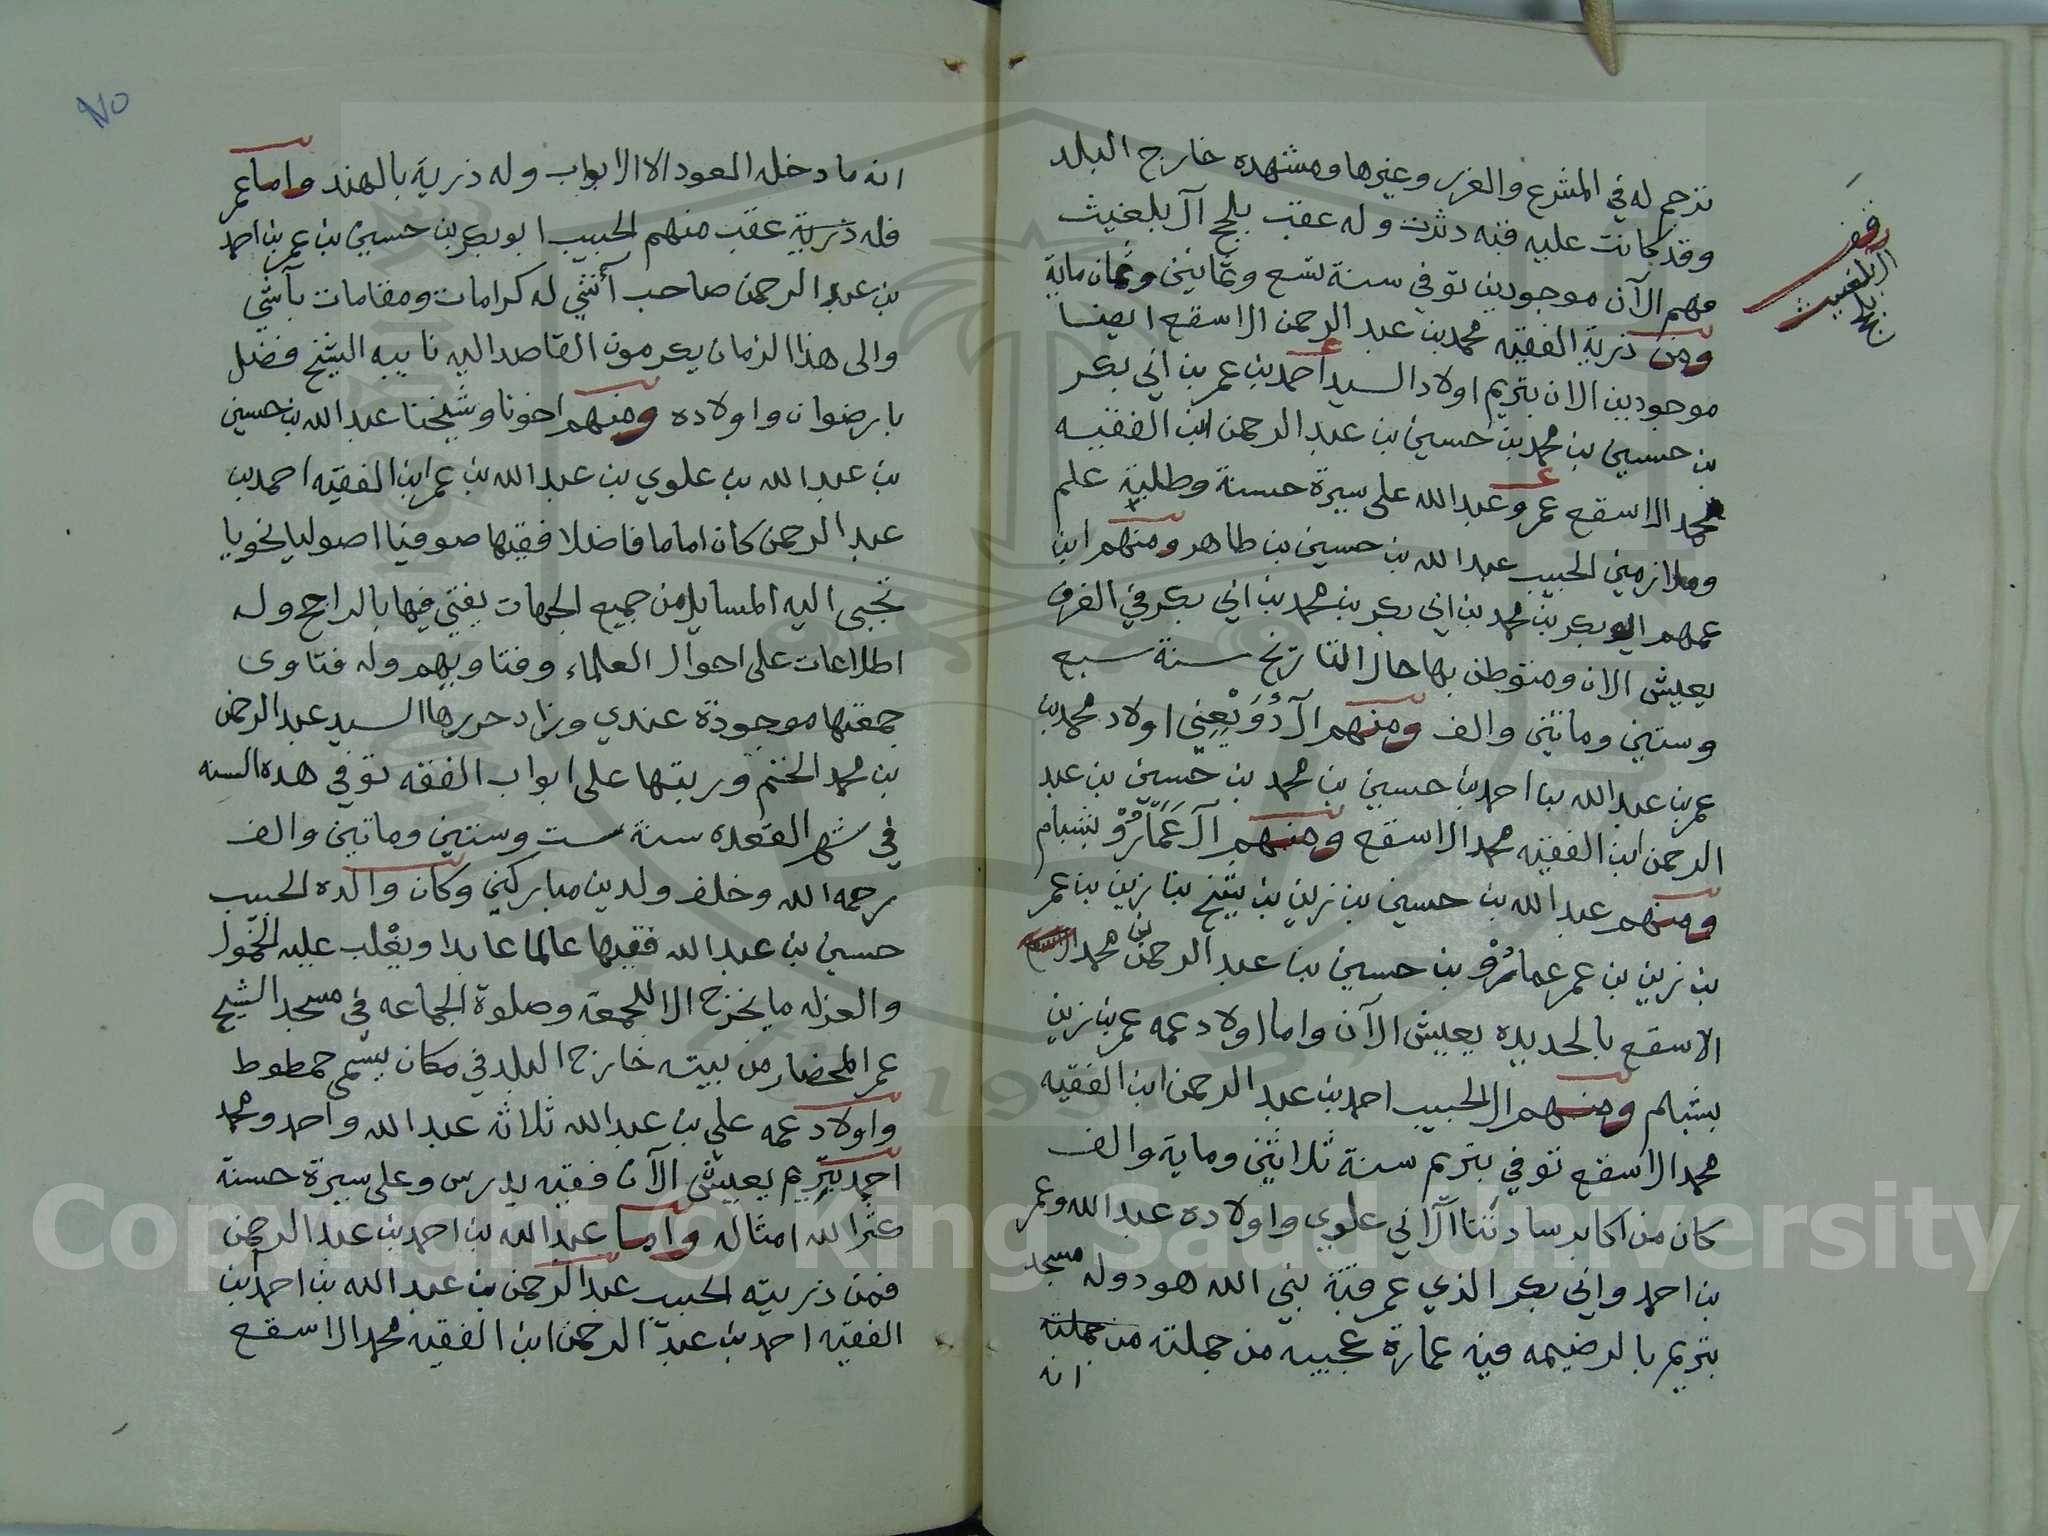 ترجم له في المشرع والغرر وغيرها ومشهده خارج البلد
وقد كانت عليه قبه دثرت وله عقب بلحج آل بلغيث
فهم الآن موجودين توفي سنة تسع وثمانين وثمان ماية
ومن ذرية الفقيه محمد بن عبد الرحمن الاسقع ايضا
موجودين الان بتريم اولاد السيد أحمد بن عمر بن ابي بكر
بن حسين بن محمد بن حسين بن عبد الرحمن ابن الفقيه
محمد الاسقع عمر وعبد الله على سيرة حسنة وطلبة علم
وملازمين الحبيب عبد الله بن حسين بن طاهر ومنهم ابن
عمهم ابو بكر بن محمد بن ابي بكر بن محمد بن ابي بكر في الغرف
يعيش الان ومتوطن بها حال التاريخ سنة سبع
وستين وماتين والف ومنهم آل دُوَيْعِني اولاد محمد بن
عمر بن عبد الله بن احمد بن حسين بن محمد بن حسين بن عبد
الرحمن ابن الفقيه محمد الاسقع ومنهم آل عَمَارُوْ بشبام
ومنهم عبد الله بن حسين بن زين بن شيخ بن زين بن عمر
بن زين بن عمر عمارُوْ بن حسين بن عبد الرحمن بن محمد
الاسقع بالحديده يعيش الآن واما اولاد عمه عمر بن زين
بشبام ومنهم الحبيب احمد بن عبد الرحمن ابن الفقيه
محمد الاسقع توفي بتريم سنة ثلاثين وماية والف
كان من اكابر سادتنا آل ابي علوي واولاده عبد الله وعمر
بن احمد وابي بكر الذي عمر قبة نبي الله هود وله مسجد
بتريم بالرضيمه فيه عمارة عجيبه من جملته من جملته
انه
آل بلغيث
بلحج
٧٥
انه ما دخله العود الا الابواب وله ذرية بالهند واما عمر
فله ذرية عقب منهم الحبيب ابو بكر بن حسين بن عمر بن احمد
بن عبد الرحمن صاحب آتشي له كرامات ومقامات بآتشي
والى هذا الزمان يكرمون القاصد اليه نايبه الشيخ فضل
بارضوان واولاده ومنهم اخونا وشيخنا عبد الله بن حسين
بن عبد الله بن علوي بن عبد الله بن عمر ابن الفقيه احمد بن
عبد الرحمن كان اماما فاضلا فقيها صوفيا اصوليا نحويا
تجبى اليه المسايل من جميع الجهات يفتي فيها بالراجح وله
اطلاعات على احوال العلماء وفتاويهم وله فتاوى
جمعتها موجودة عندي وزاد حررها السيد عبد الرحمن
بن محمد الختم ورتبها على ابواب الفقه توفي هده السنه
في شهر القعده سنة ست وستين وماتين والف
رحمه الله وخلف ولدين مباركين وكان والده الحبيب
حسين بن عبد الله فقيها عالما عابدا ويغْلب عليه الخمول
والعزله ما يخرج الا للجمعة وصلوة الجماعه في مسجد الشيخ
عمر المحضار من بيته خارج البلد في مكان يسمى حمطوط
واولاد عمه علي بن عبد الله ثلاثه عبد الله واحمد ومحمد
احمد بتريم يعيش الآن فقيه يدرس وعلى سيرة حسنة
كثر الله امثاله واما عبد الله بن احمد بن عبد الرحمن
فمن ذريته الحبيب عبد الرحمن بن عبد الله بن احمد بن
الفقيه احمد بن عبد الرحمن ابن الفقيه محمد الاسقع
Copyright © King Saud University
1957